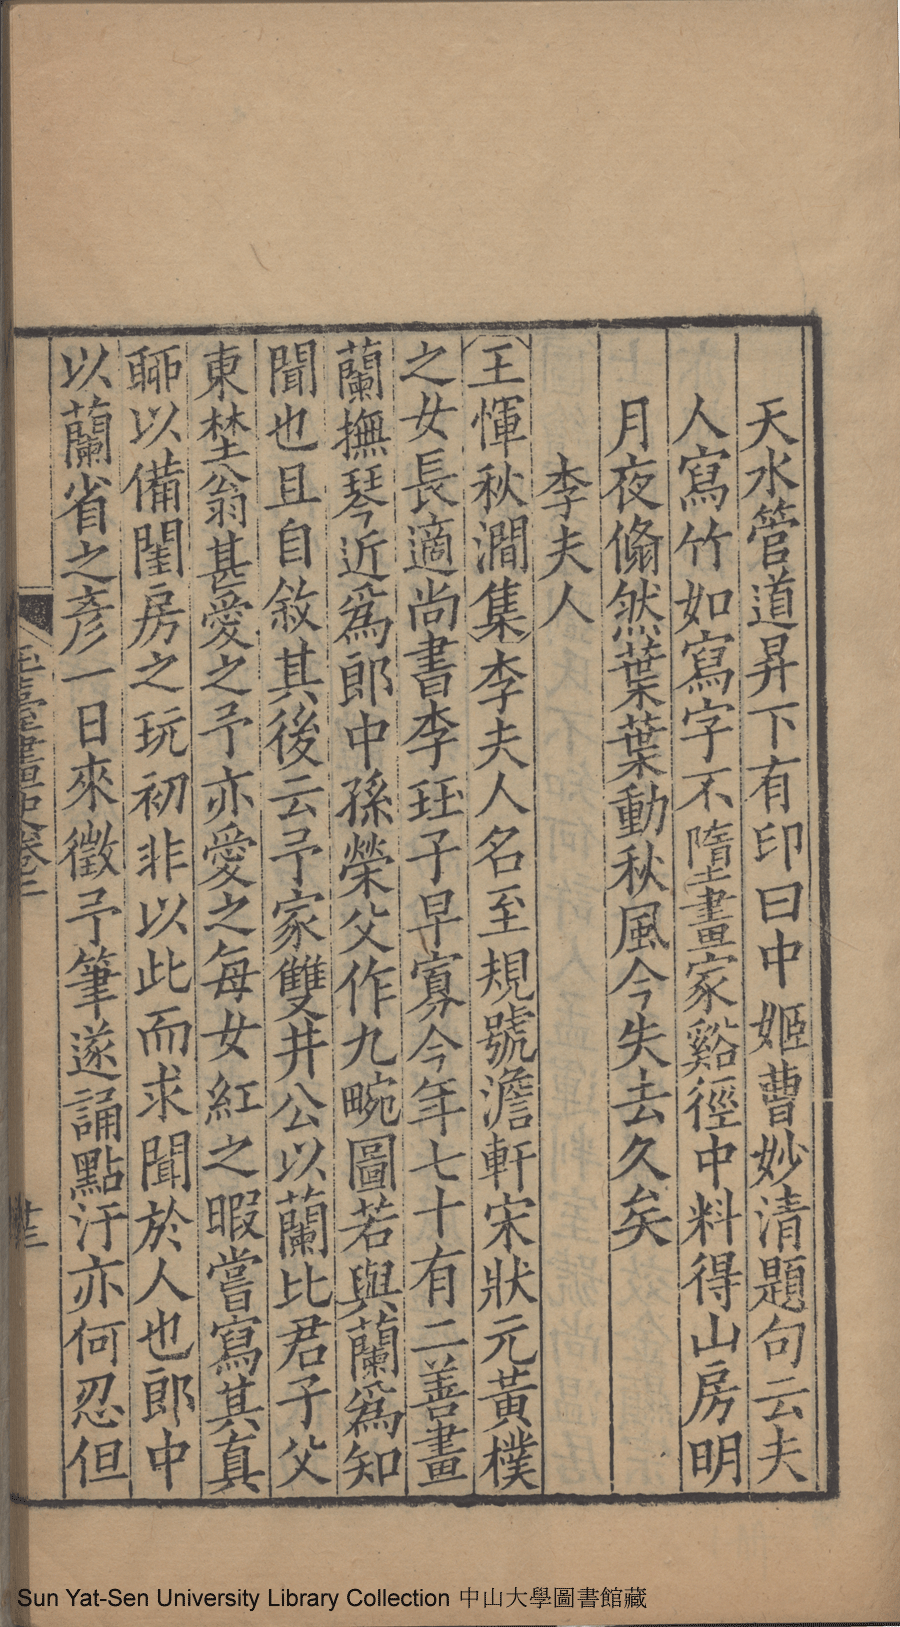 天水管道昇下有印曰中姬曹妙清題句云夫
人寫竹如寫字不墮畫家谿徑中料得山房明
月夜翛然葉葉動秋風今失去久矣
李夫人
王惲秋澗集李夫人名至規號澹軒宋狀元黃樸
之女長適尚書李珏子早寡今年七十有二善畫
蘭撫琴近爲郎中孫榮父作九畹圖若與蘭爲知
聞也且自敘其後云予家雙井公以蘭比君子父
東埜翁甚愛之予亦愛之每女紅之暇嘗寫其真
聊以備閨房之玩初非以此而求聞於人也郎中
以蘭省之彥一日來徵予筆遂誦點汙亦何忍但
玉臺畫史卷二
Sun Yat-Sen University Library Collection 中山大學圖書館藏